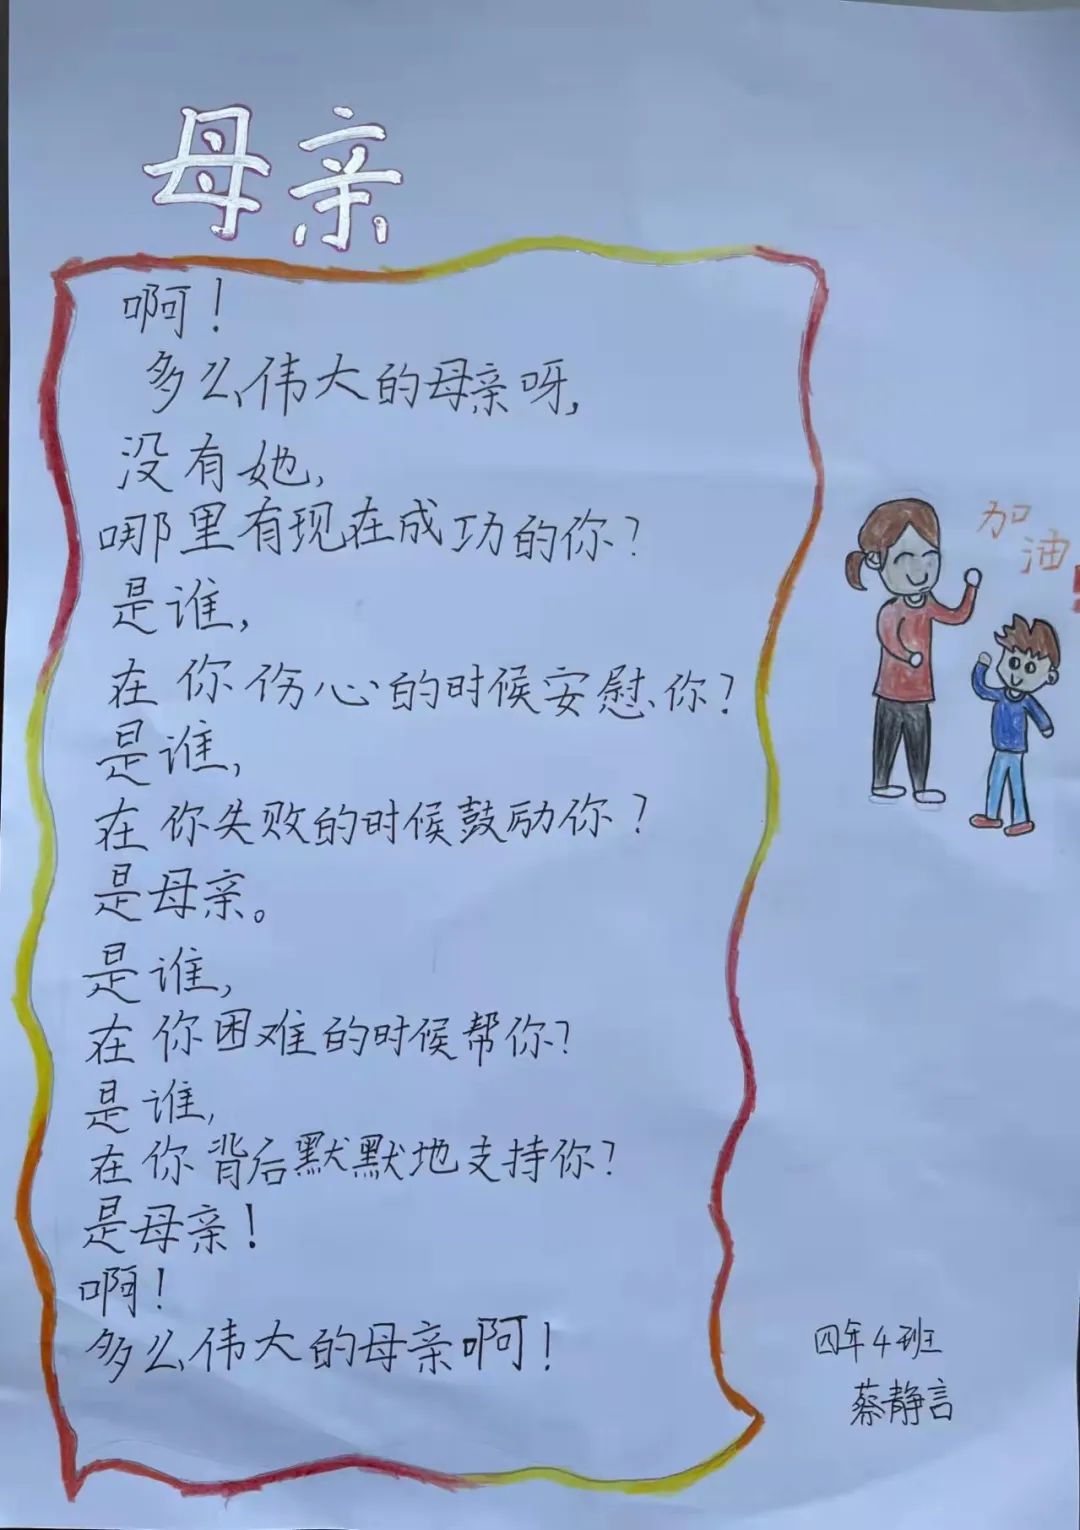 母亲
啊！
多么伟大的母亲呀，
没有她，
哪里有现在成功的你？
是谁，
在你伤心的时候安慰你？
是谁，
在你失败的时候鼓励你？
是母亲。
是谁，
在你困难的时候帮你？
是谁，
在你背后默默地支持你？
是母亲！
啊！
多么伟大的母亲啊！
加
油
四年4班
蔡静言